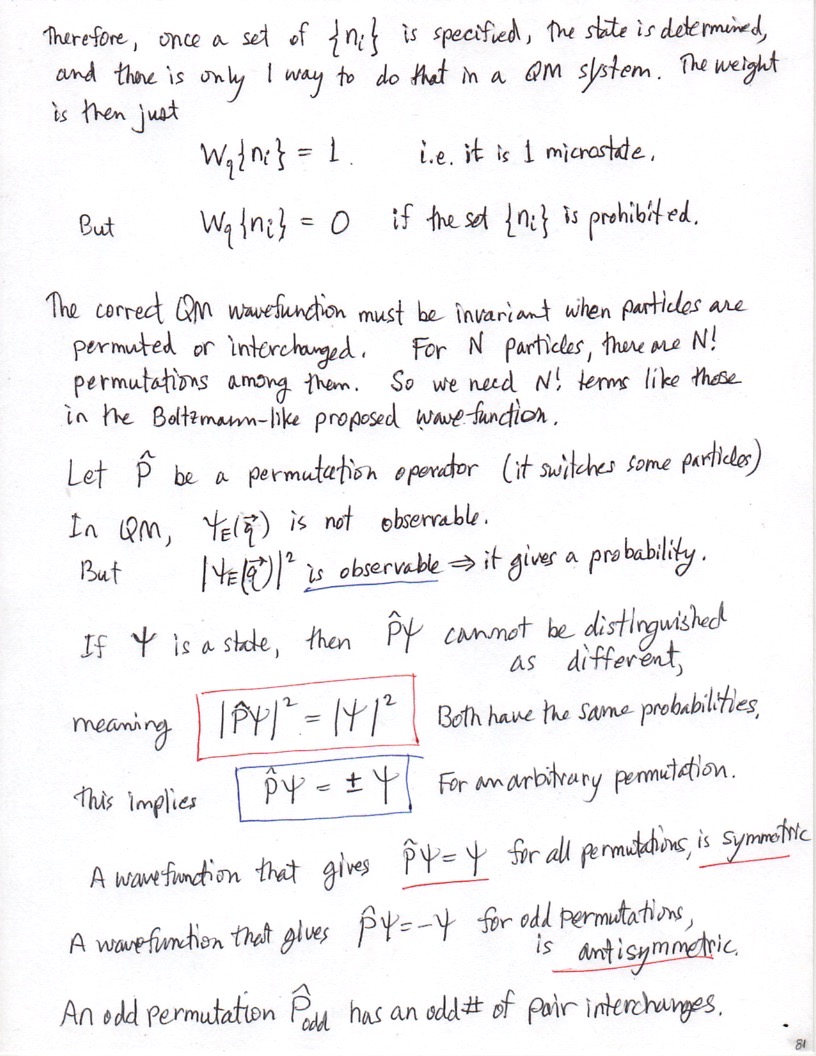 Therefore, once a set of {nᵢ} is specified, the state is determined,
and there is only 1 way to do that in a QM system. The weight
is then just
W_q{nᵢ} = 1. i.e. it is 1 microstate.
But W_q{nᵢ} = 0 if the set {nᵢ} is prohibited.
The correct QM wavefunction must be invariant when particles are
permuted or interchanged. For N particles, there are N!
permutations among them. So we need N! terms like those
in the Boltzmann-like proposed wave-function.
Let P̂ be a permutation operator (it switches some particles)
In QM, Ψ_E(q⃗) is not observable.
But |Ψ_E(q⃗)|² is observable ⇒ it gives a probability.
If Ψ is a state, then P̂Ψ cannot be distinguished
as different,
meaning |P̂Ψ|² = |Ψ|² Both have the same probabilities,
this implies P̂Ψ = ± Ψ For an arbitrary permutation.
A wavefunction that gives P̂Ψ = Ψ for all permutations, is symmetric
A wavefunction that gives P̂Ψ = -Ψ for odd permutations,
is antisymmetric.
An odd permutation P̂_odd has an odd # of pair interchanges.
81